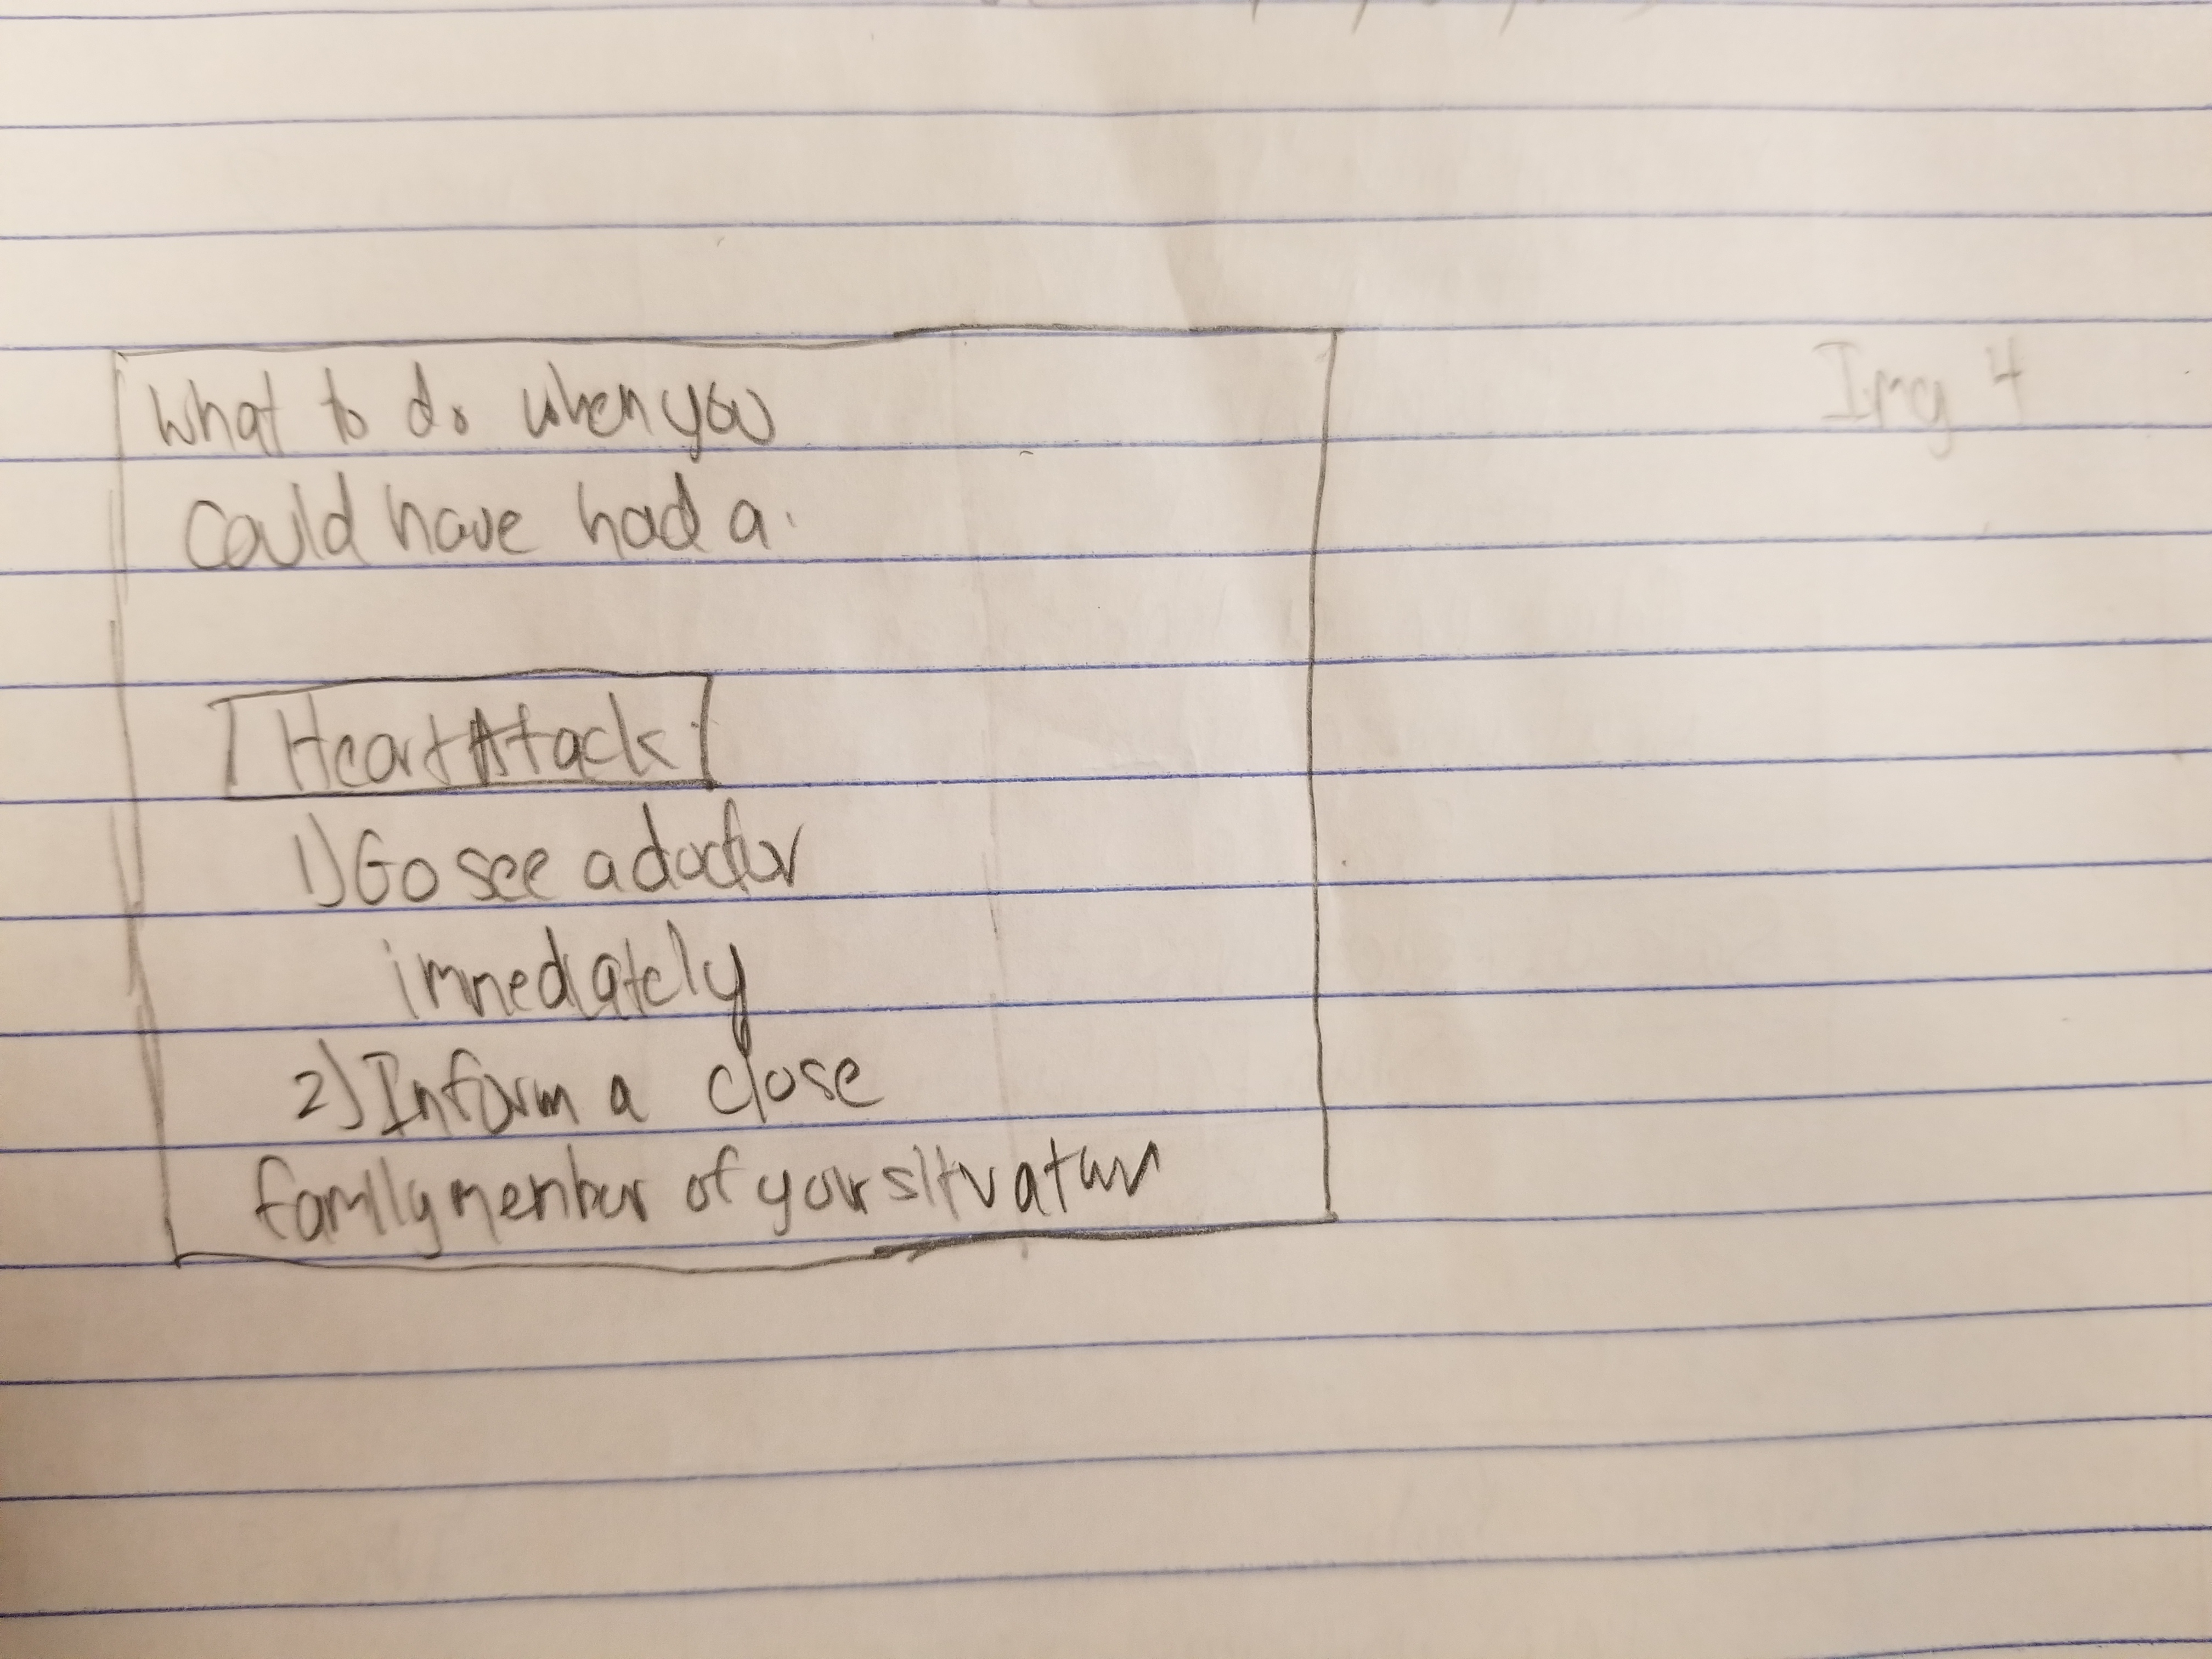 Img 4
What to do when you
could have had a
Heart Attack
1) Go see a doctor
immediately
2) Inform a close
family member of your situation